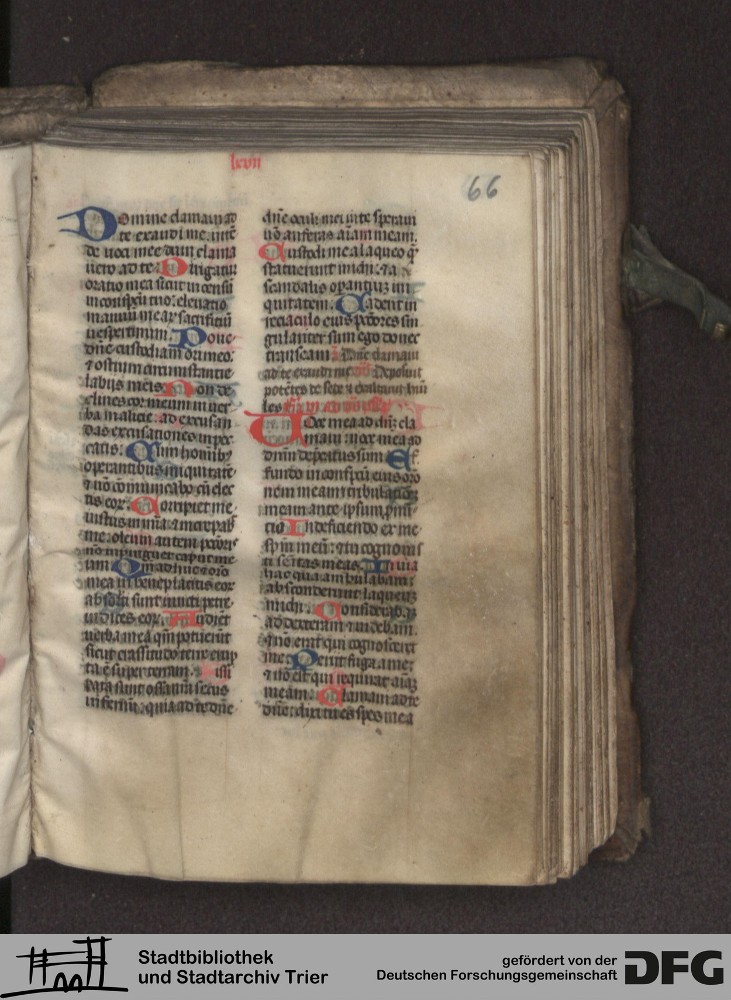 lxvii
66
Domine clamaui ad
te exaudi me: inte͂
de uoci mee dum clama
uero ad te: Dirigatur
oratio mea sicut incensu͂
in conspectu tuo: eleuatio
manuu͂ mear͂ sacrificiu͂
uespertinum. Pone
dn͂e custodiam ori meo:
⁊ ostium circumstantie
labijs meis. Non de
clines cor meum in uer
ba malicie: ad excusan
das excusationes in pec
catis. Cum hominib;
operantibus iniquitate͂:
⁊ no͂ co͂municabo cu͂ elec
tis eor͂. Corripiet me
iustus in mi͂a ⁊ increpab͂
me: oleum autem pec͂cor͂
no͂ inpinguet caput me
um. Qm͂ adhuc ⁊ or͂o
mea in beneplacitis eor͂
absorti sunt iuncti petre
iudices eor͂. Audient
uerba mea qm͂ potuerunt
sicut crassitudo terre erup
ta e͂ super terram. Dissi
pata sunt ossa n͂ra secus
infernu͂: quia ad te dn͂e
dn͂e oculi mei in te speraui
no͂ auferas a͂iam meam.
Custodi me a laqueo q͂
statuerunt michi: ⁊ a
scandalis operantiu͂ ini
quitatem. Cadent in
retiaculo eius pc͂cores sin
gulariter sum ego donec
transeam. Dn͂e clamaui
ad te exaudi me. Deposuit
potentes de sede ⁊ exaltauit humi
les
Uoce mea ad dn͂m cla
maui: uoce mea ad
dn͂m deprecatus sum. Ef
fundo in conspectu eius or͂o
nem meam: tribulatione͂
meam ante ipsum pronu͂
tio. In deficiendo ex me
sp͂m meu͂: ⁊ tu cognouis
ti semitas meas. In uia
hac qua ambulabam:
absconderunt laqueu͂
michi. Considerabam
ad dexteram ⁊ uidebam:
⁊ no͂ erat qui cognosceret
me. Periit fuga a me:
⁊ no͂ est qui requirat a͂iam
meam. Clamaui ad te
dn͂e: dixi tu es spes mea
Stadtbibliothek
und Stadtarchiv Trier
gefördert von der
Deutschen Forschungsgemeinschaft
DFG